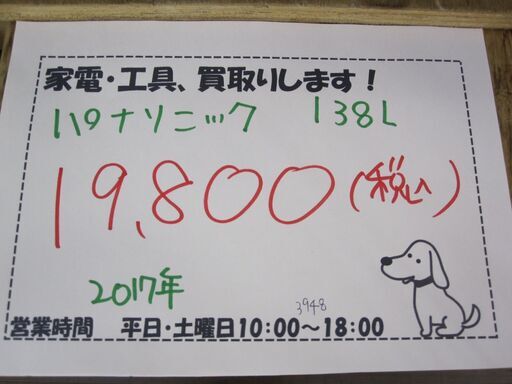 家電・工具、買取りします！
パナソニック 138L
19,800(税込)
2017年
3948
営業時間 平日・土曜日10:00～18:00